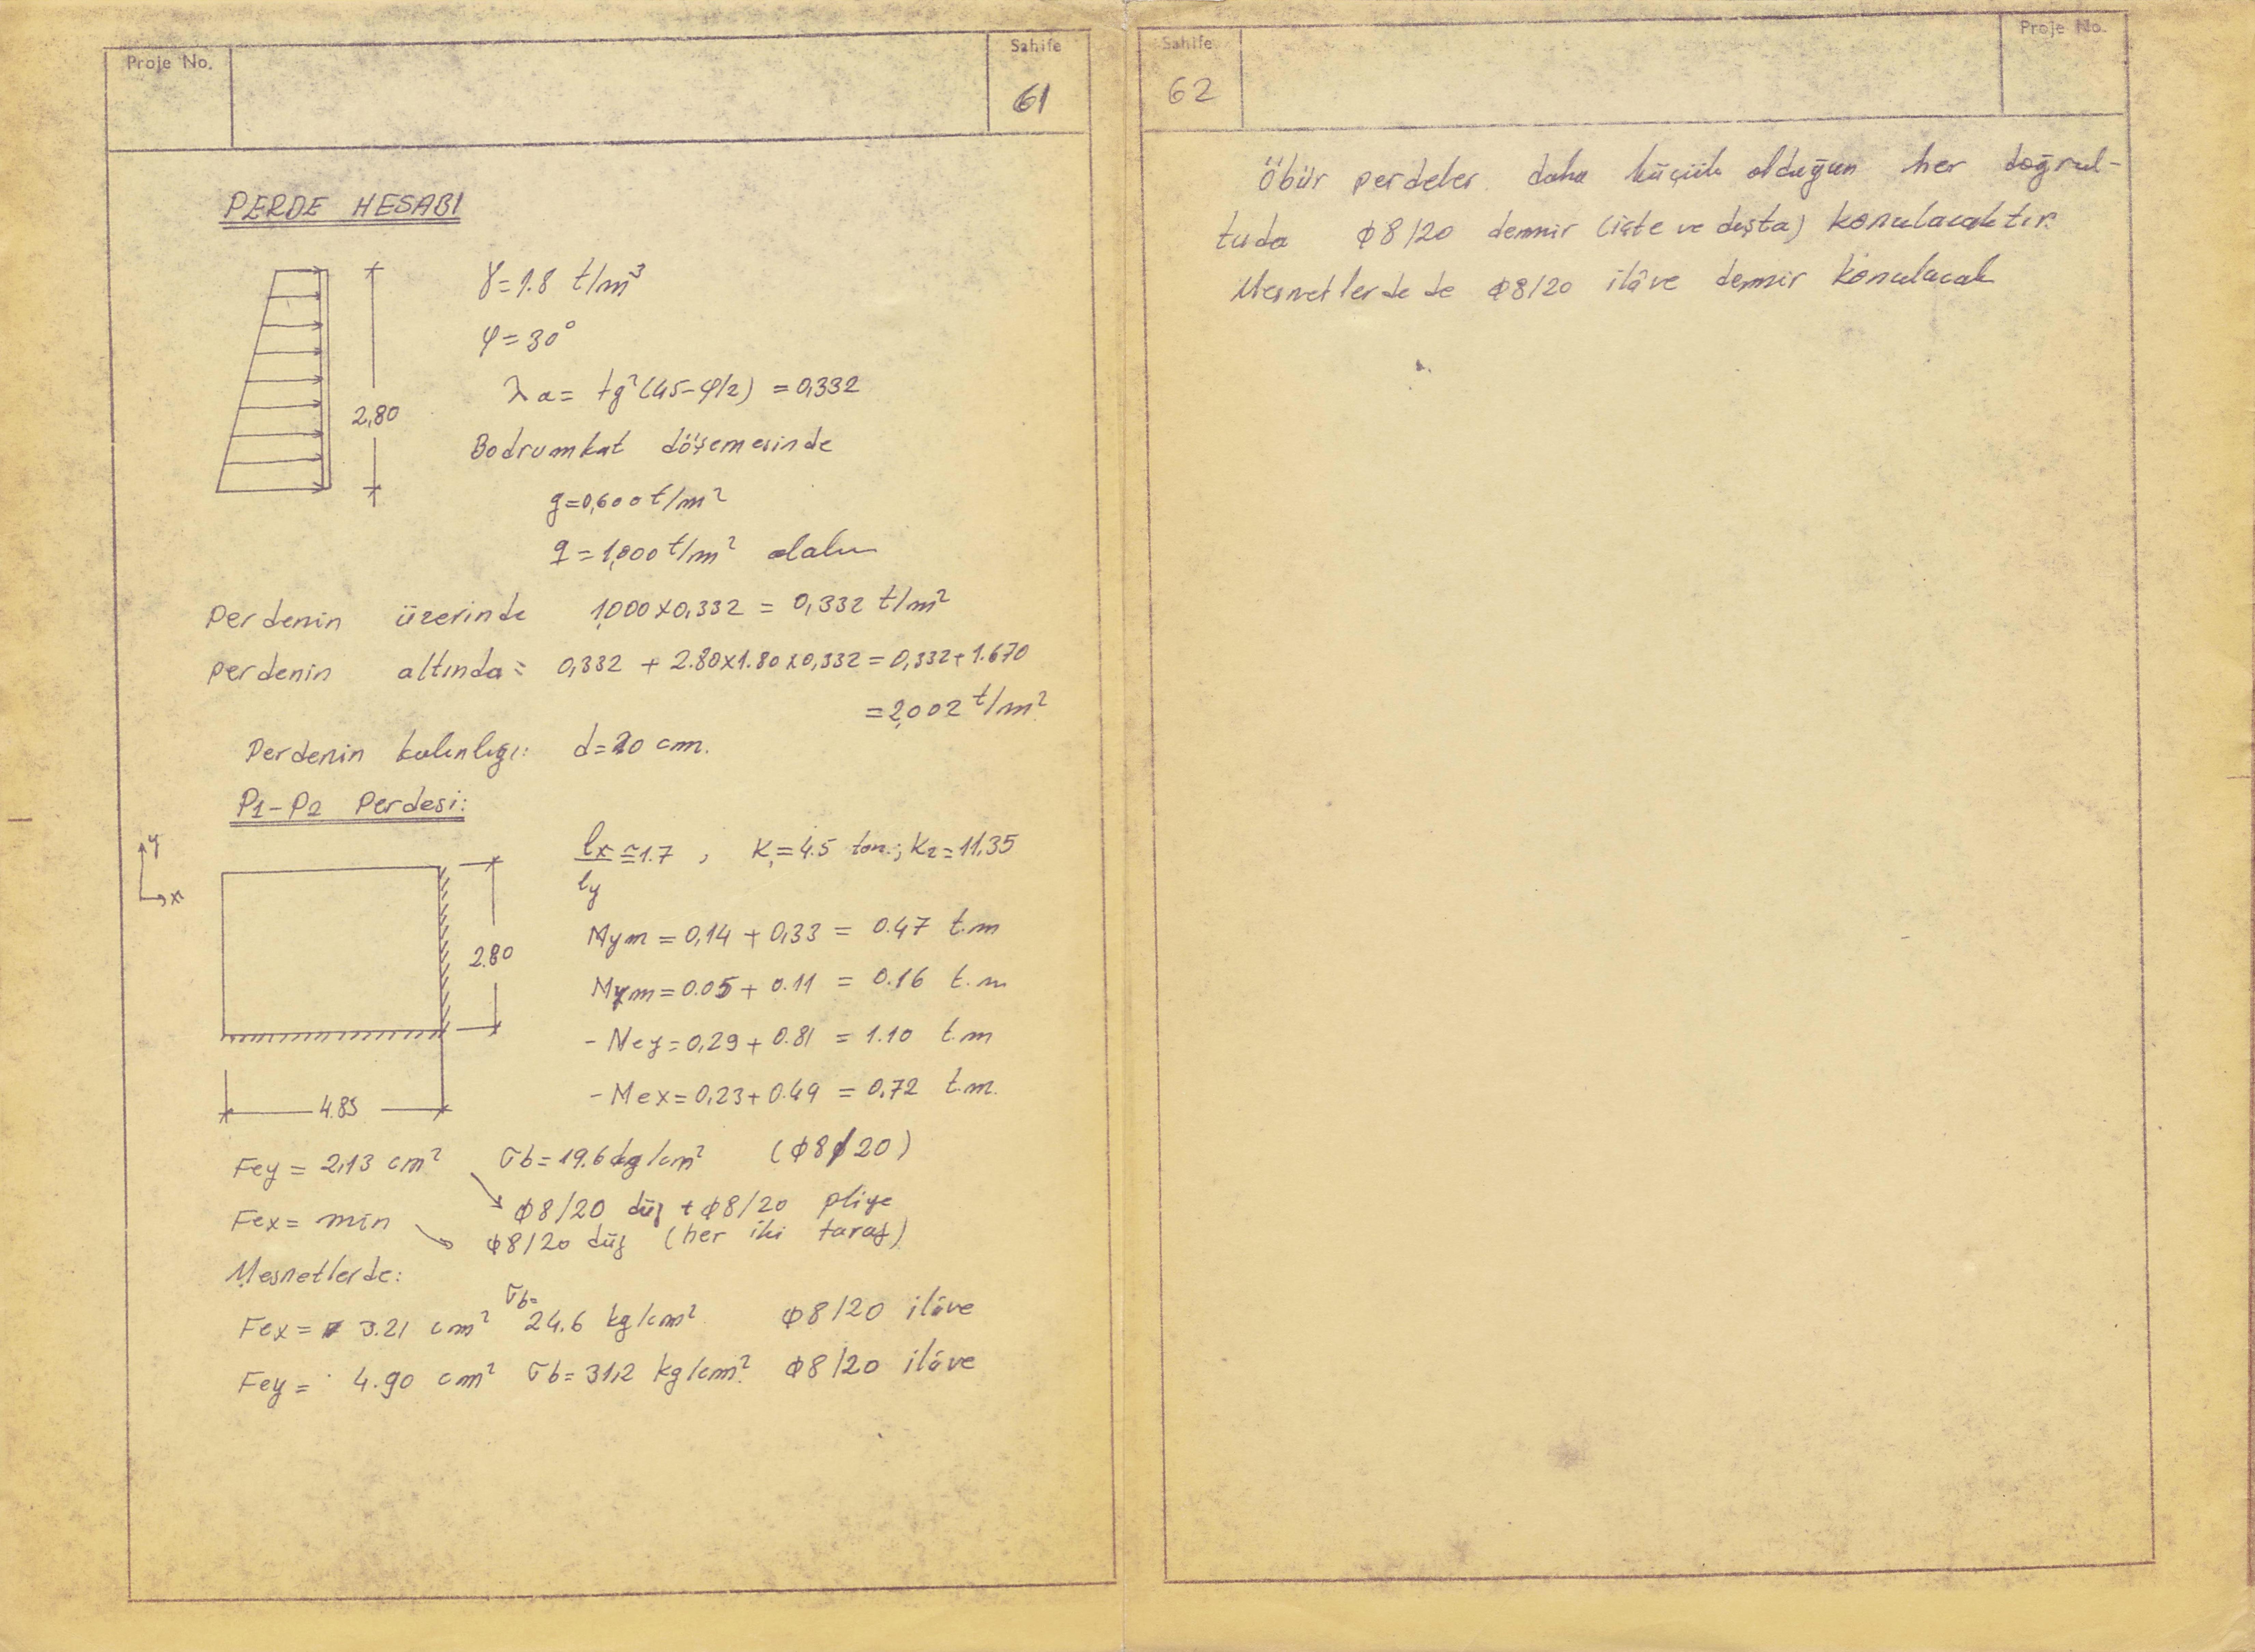 Proje No.
Sahife
61
PERDE HESABI
γ=1.8 t/m³
φ=30°
λa= tg²(45-φ/2) =0,332
2,80
Bodrumkat döşemesinde
g=0,600 t/m²
q=1,000 t/m² alalım
Perdenin üzerinde 1,000x0,332 = 0,332 t/m²
Perdenin altında= 0,332 + 2.80x1.80x0,332=0,332+1.670
=2,002 t/m²
Perdenin kalınlığı: d=20 cm.
P1-P2 Perdesi:
y
x
lx/ly ≅1.7 , K1=4.5 ton.; K2=11,35
Mym=0,14+0,33= 0.47 t.m
2.80
Mxm=0.05+0.11 = 0.16 t.m
-Mey=0,29+0.81 = 1.10 t.m
-Mex=0,23+0.49 = 0,72 t.m.
4.85
Fey= 2,13 cm² σb=19.6 kg/cm² (φ8/20)
φ8/20 düz + φ8/20 pliye
Fex= min
φ8/20 düz (her iki taraf)
Mesnetlerde:
Fex= 3.21 cm² σb= 24.6 kg/cm² φ8/20 ilâve
Fey= 4.90 cm² σb=31,2 kg/cm² φ8/20 ilâve
Sahife
62
Proje No.
Öbür perdeler daha küçük olduğun her doğrul-
tuda φ8/20 demir (içte ve dışta) konulacaktır.
Mesnetlerde de φ8/20 ilâve demir konulacak